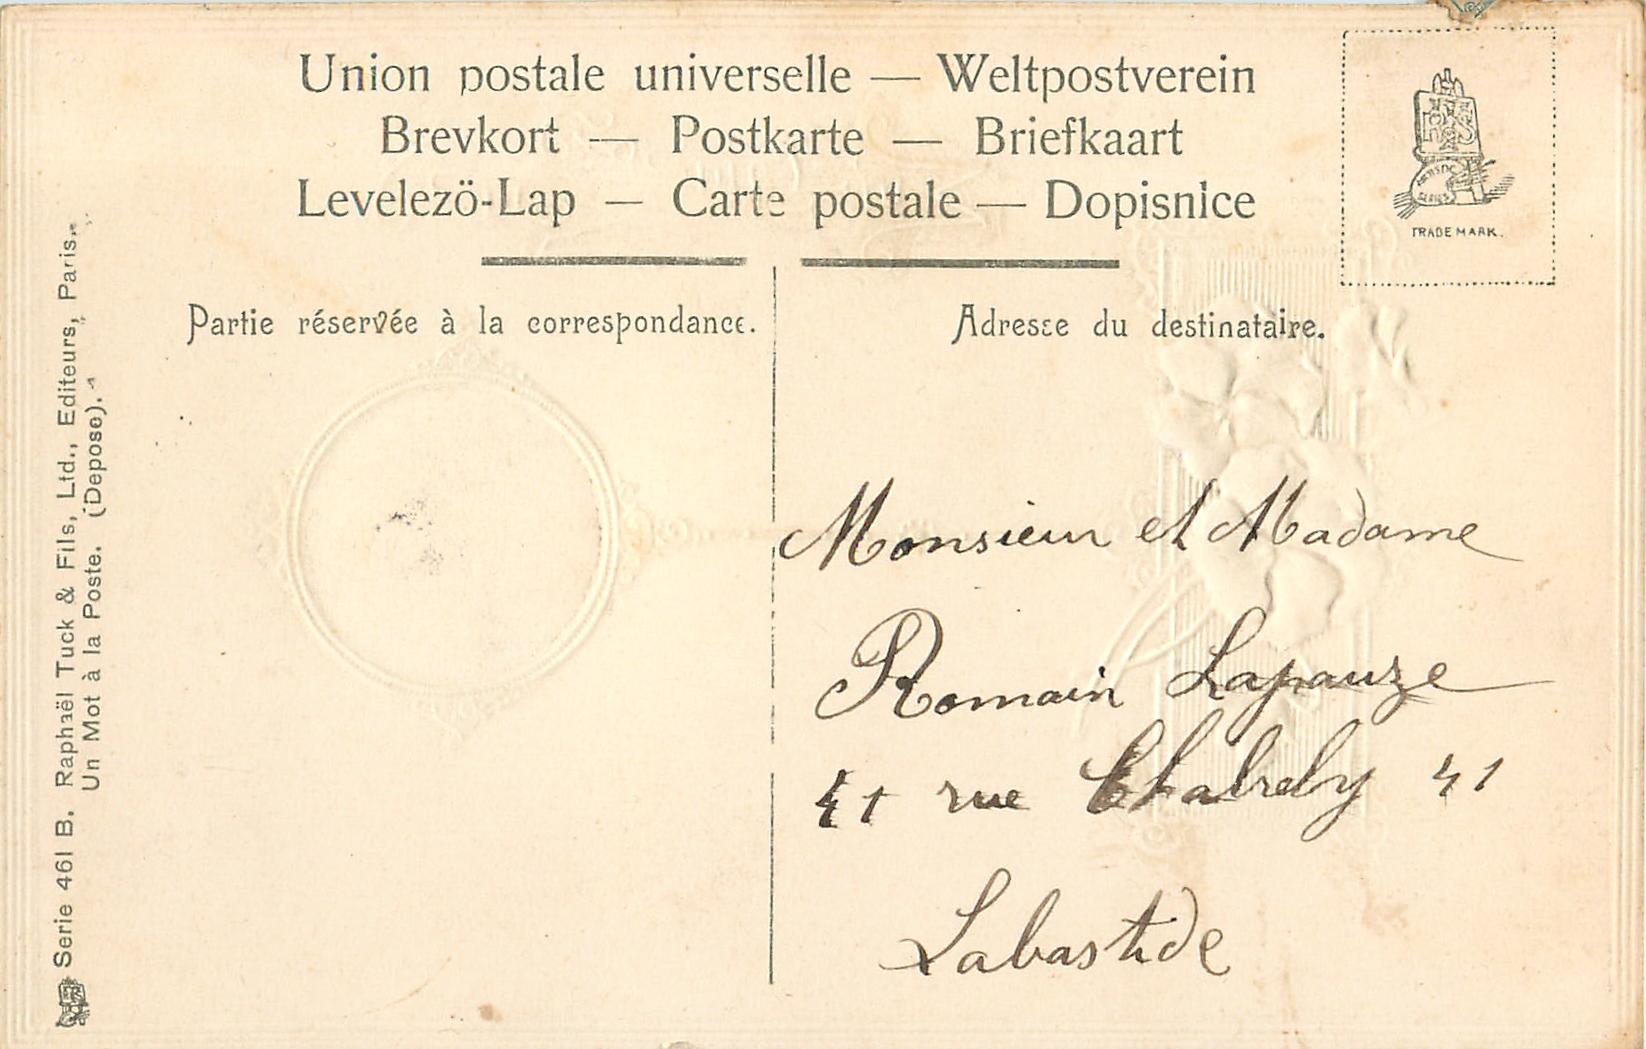 Union postale universelle — Weltpostverein
Brevkort — Postkarte — Briefkaart
Levelezö-Lap — Carte postale — Dopisnice
TRADE MARK.
Partie réservée à la correspondance.
Adresse du destinataire.
Monsieur et Madame
Romain Lapauze
41 rue 41
Labastide
Serie 461 B. Raphaël Tuck & Fils, Ltd., Editeurs, Paris.
Un Mot à la Poste. (Depose).